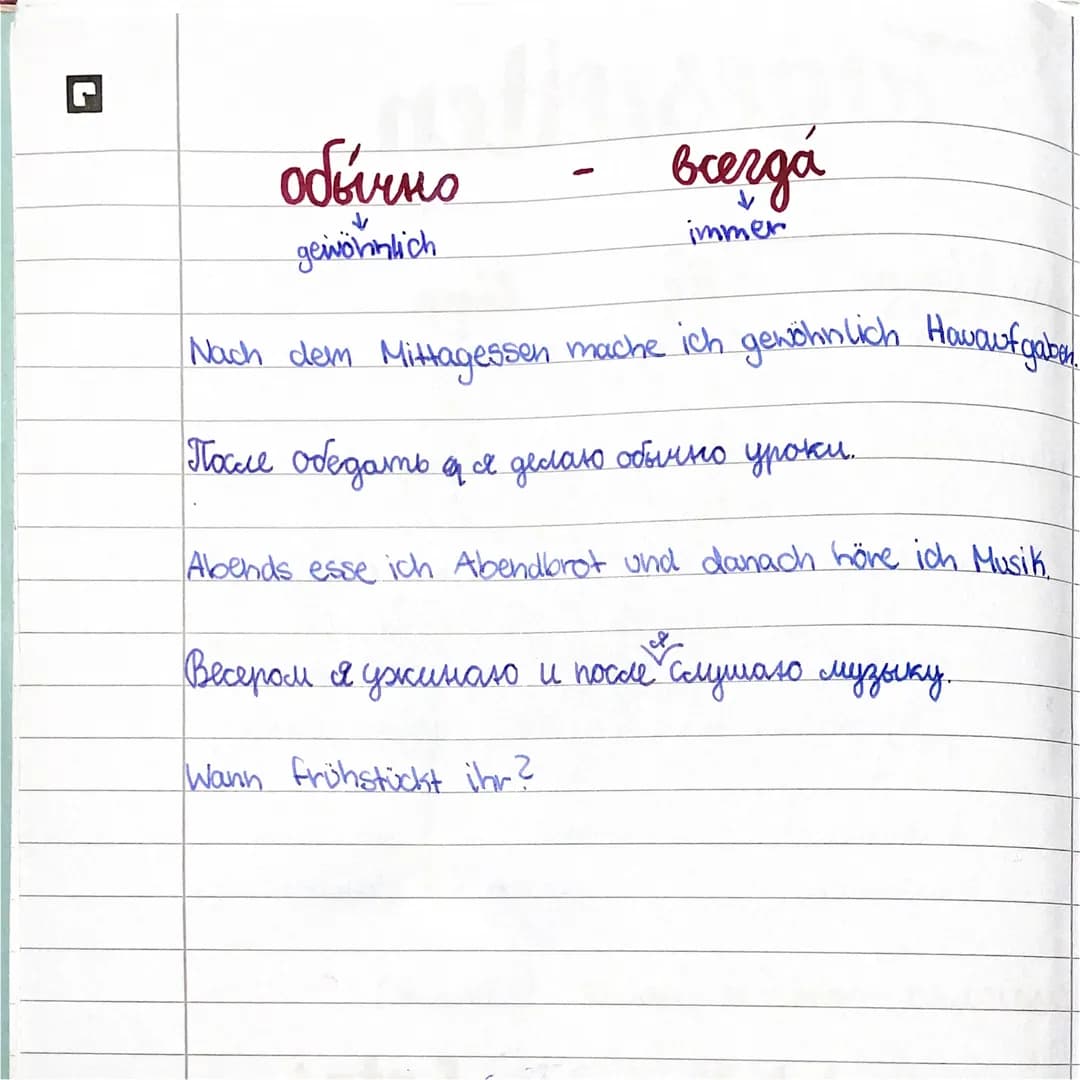 обы́чно - всегда́
↓ ↓
gewöhnlich immer
Nach dem Mittagessen mache ich gewöhnlich Hausaufgaben.
После обедать я делаю обычно уроки.
Abends esse ich Abendbrot und danach höre ich Musik.
Весером я ужинаю и после я слушаю музыку.
Wann frühstückt ihr?